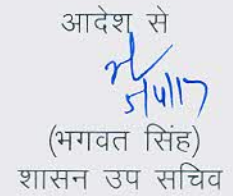 आदेश से
5/4/17
(भगवत सिंह)
शासन उप सचिव